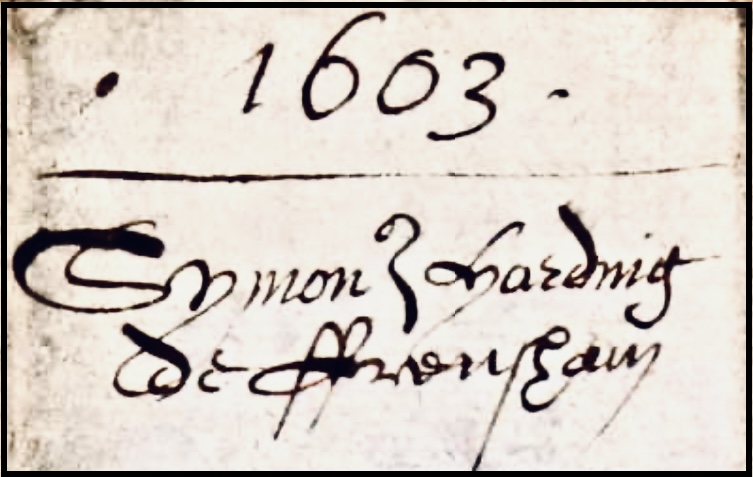 · 1603 ·
Symon Harding
de ffrensham